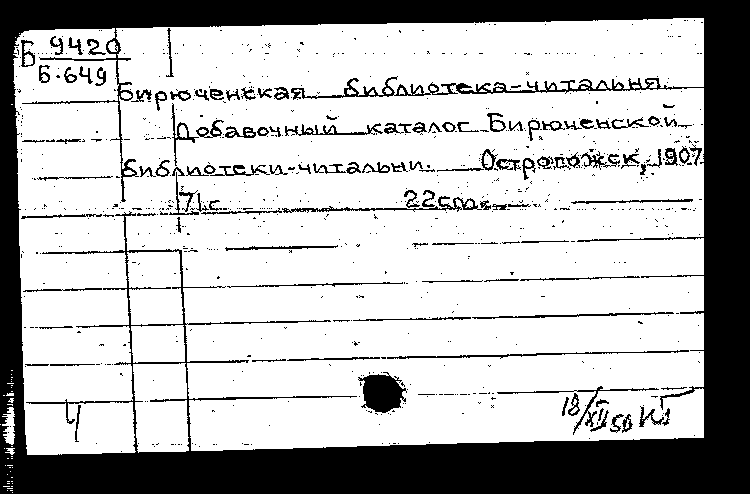 Б 9420
Б.649
Бирюченская библиотека-читальня.
Добавочный каталог Бирюченской
библиотеки-читальни. Острогожск, 1907
71 с 22 cm.
Ч
18/XII 50